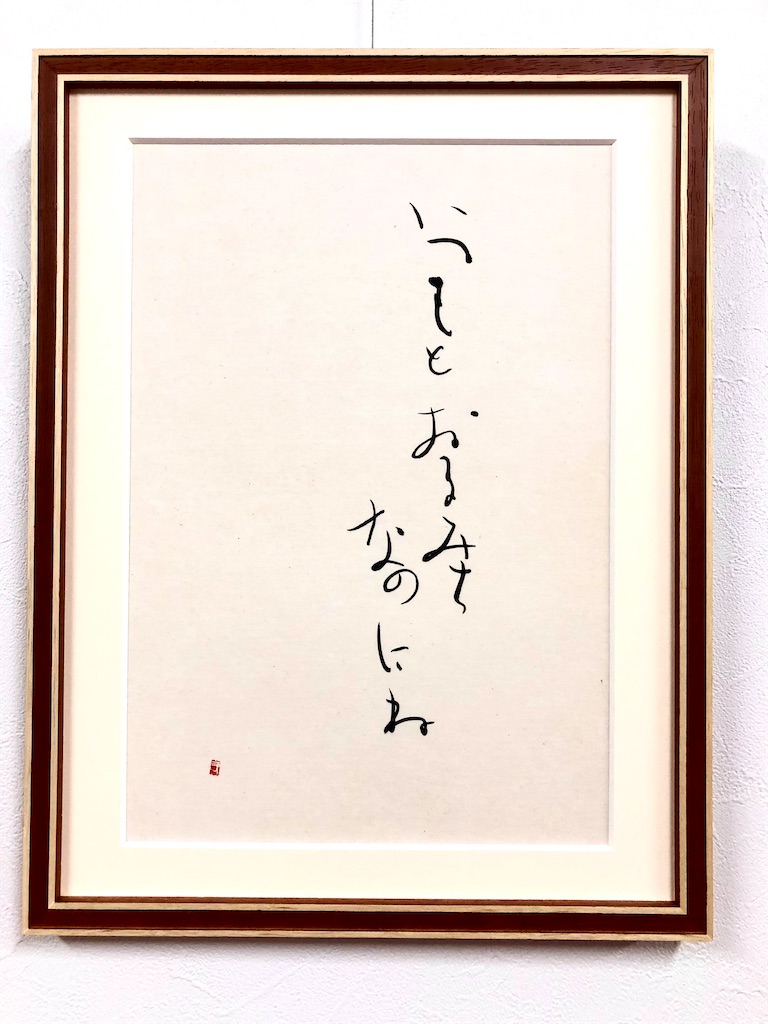 いつもとおるみち
なのにね